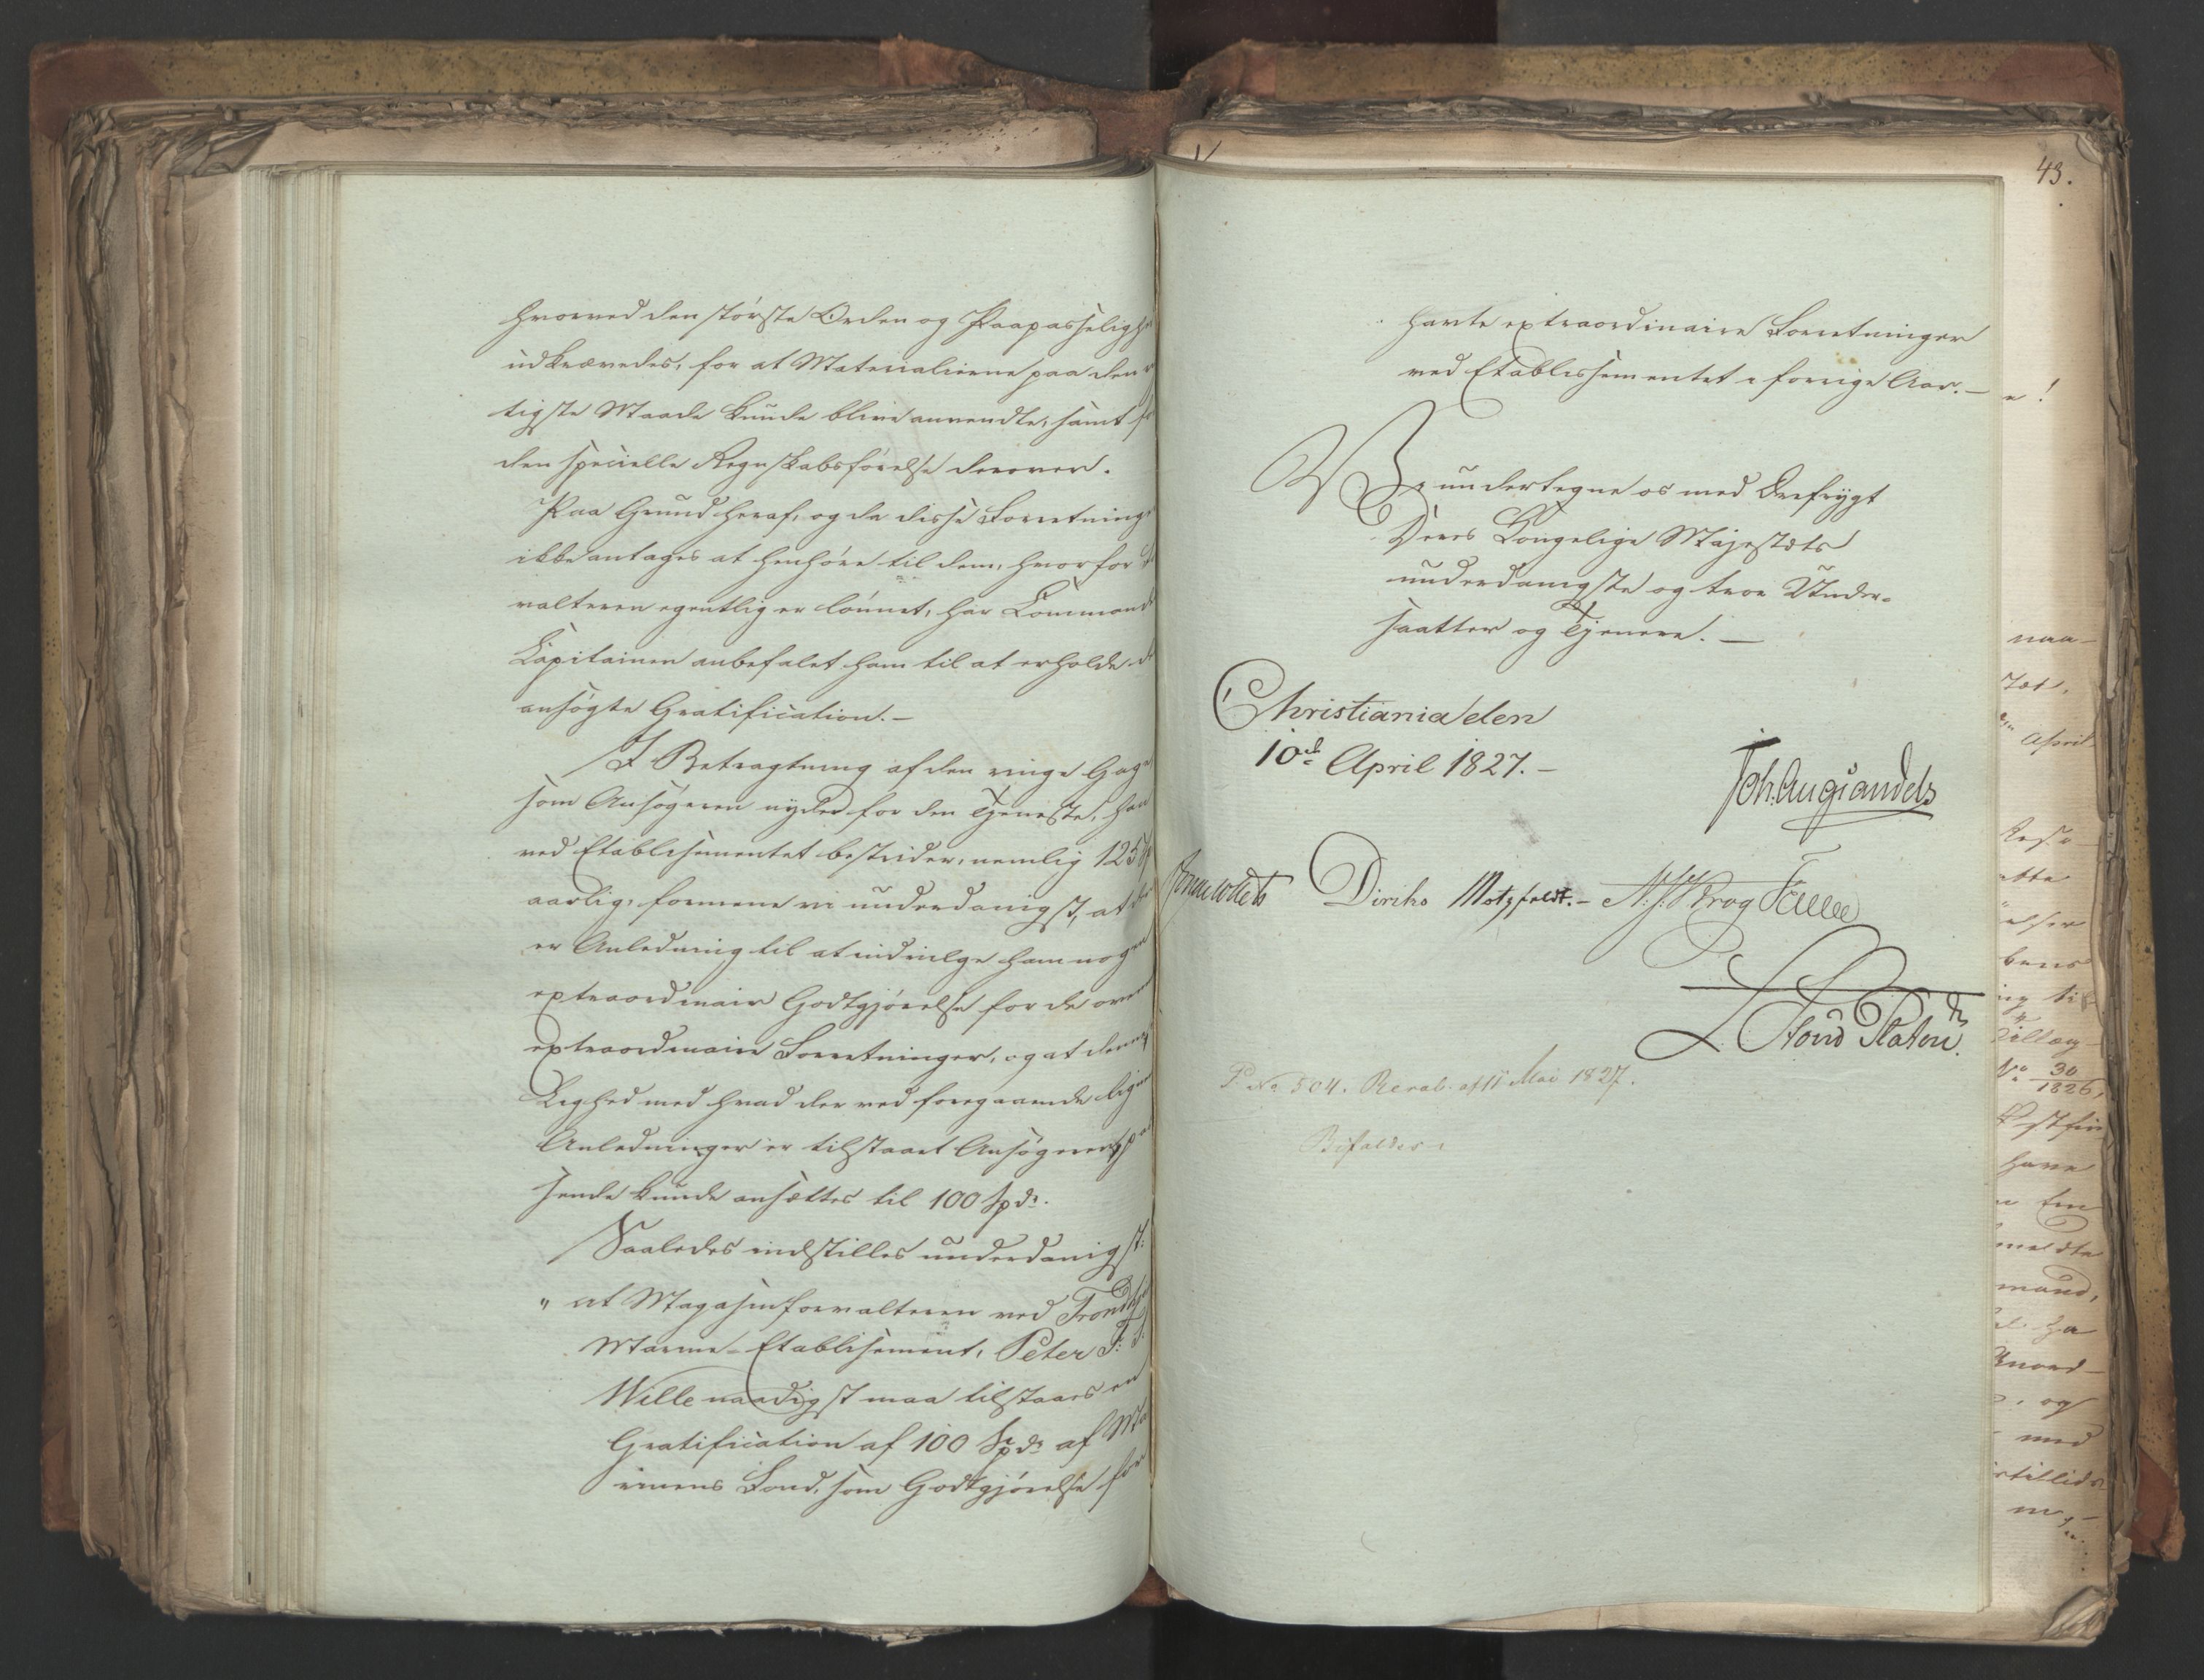 hvorved den største Orden og Paapasseligh
udkrævedes, for at Materialierne paa den
tigste Maade kunde blive anvendte, samt
den specielle Regnskabsførelse derover.
Paa Grund heraf, og da disse Forretning
ikke antages at henhøre til dem, hvorfor
valteren egentlig er lønnet, har Command
Capitainen anbefalet ham til at erholde d
ansøgte Gratification.—
I Betragtning af den ringe Gage
som Ansøgeren nyder for den Tjeneste, han
ved Etablissementet bestrider, nemlig 125
aarlig, formene vi underdanigst, at
er Anledning til at indvilge ham nogen
extraordinair Godtgjørelse for de oven
extraordinaire Forretninger, og at denne,
Liighed med hvad der ved foregaaende lign
Anledninger er tilstaaet Ansøgeren, pas
sende kunde ansættes til 100 Spd.
Saaledes indstilles underdanigst:
" at Magasinforvalteren ved Trondhj
Marine-Etablissement, Peter F:
Wille naadigst maa tilstaaes en
Gratification af 100 Spd. af Ma
rinens Fond, som Godtgjørelse for
43.
havte extraordinaire Forretninger
ved Etablissementet i forrige Aar.—
Vi undertegne os med Ærefrygt
Deres Kongelige Majestæts
underdanigste og troe Under-
saatter og Tjenere.—
Christiania den
10de April 1827.—
Joh. Aug. Sandels
Diriks Motzfeldt.— Krog
Platou
P No 504. Resol. af 11 Mai 1827.
Bifaldes
naa-
April
have
mand,
og
med
30
1826,